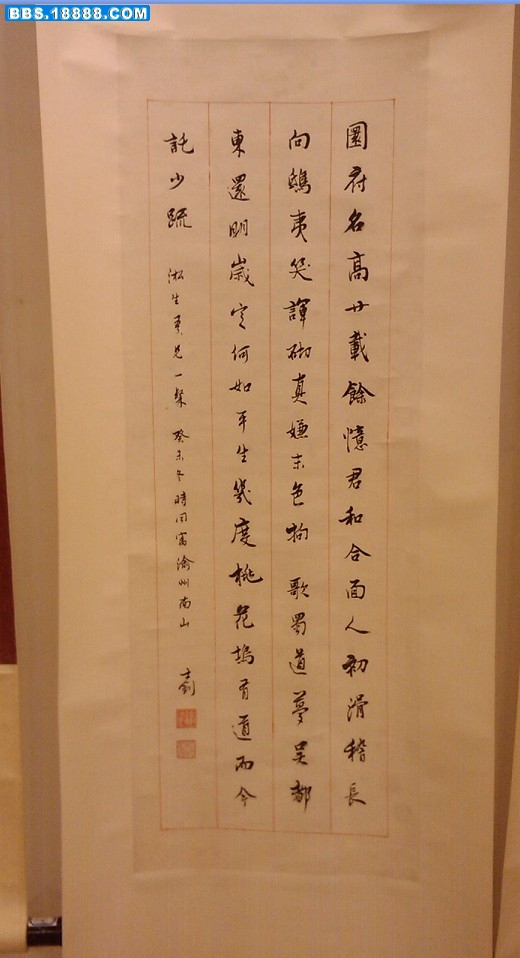 BBS.18888.COM
圜府名高廿載餘憶君和合面人初滑稽長
向鴟夷笑諢砌真嫌末色拘 歌蜀道夢吳都
東還明歲定何如平生幾度桃花塢有道而今
託少疏 淞生吾兄一粲 癸未冬時同寓渝州南山 士釗